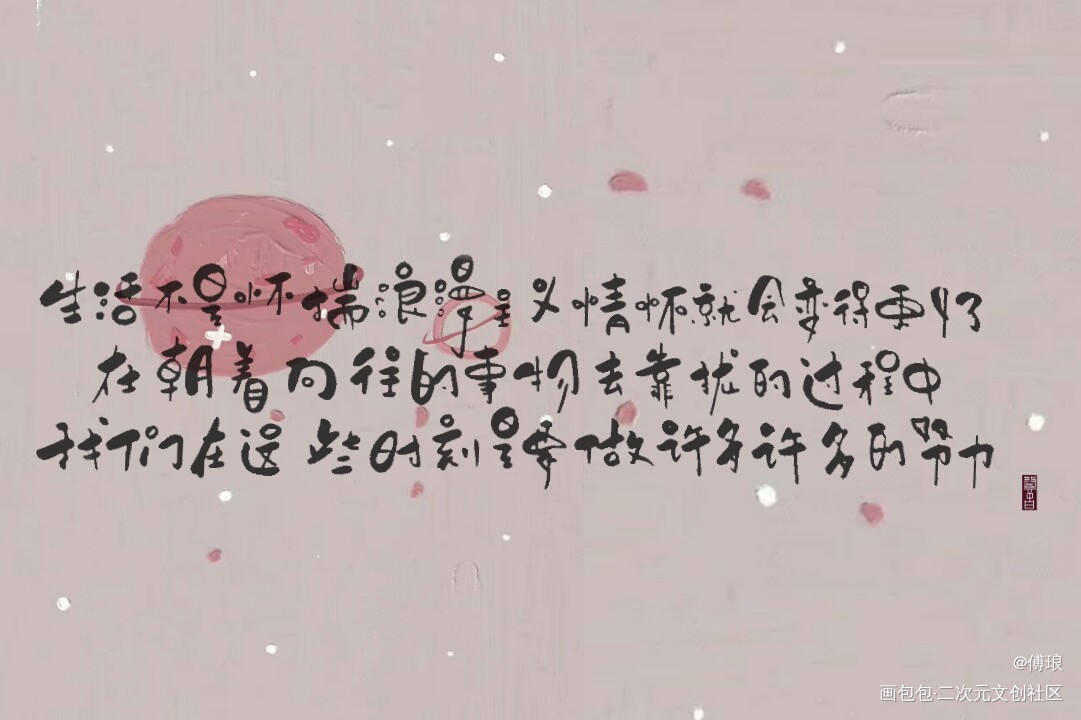 生活不是怀揣浪漫主义情怀就会变得更好了
在朝着向往的事物去靠扰的过程中
我们在这些时刻是要做许多许多的努力
@傅琅
画包包·二次元文创社区